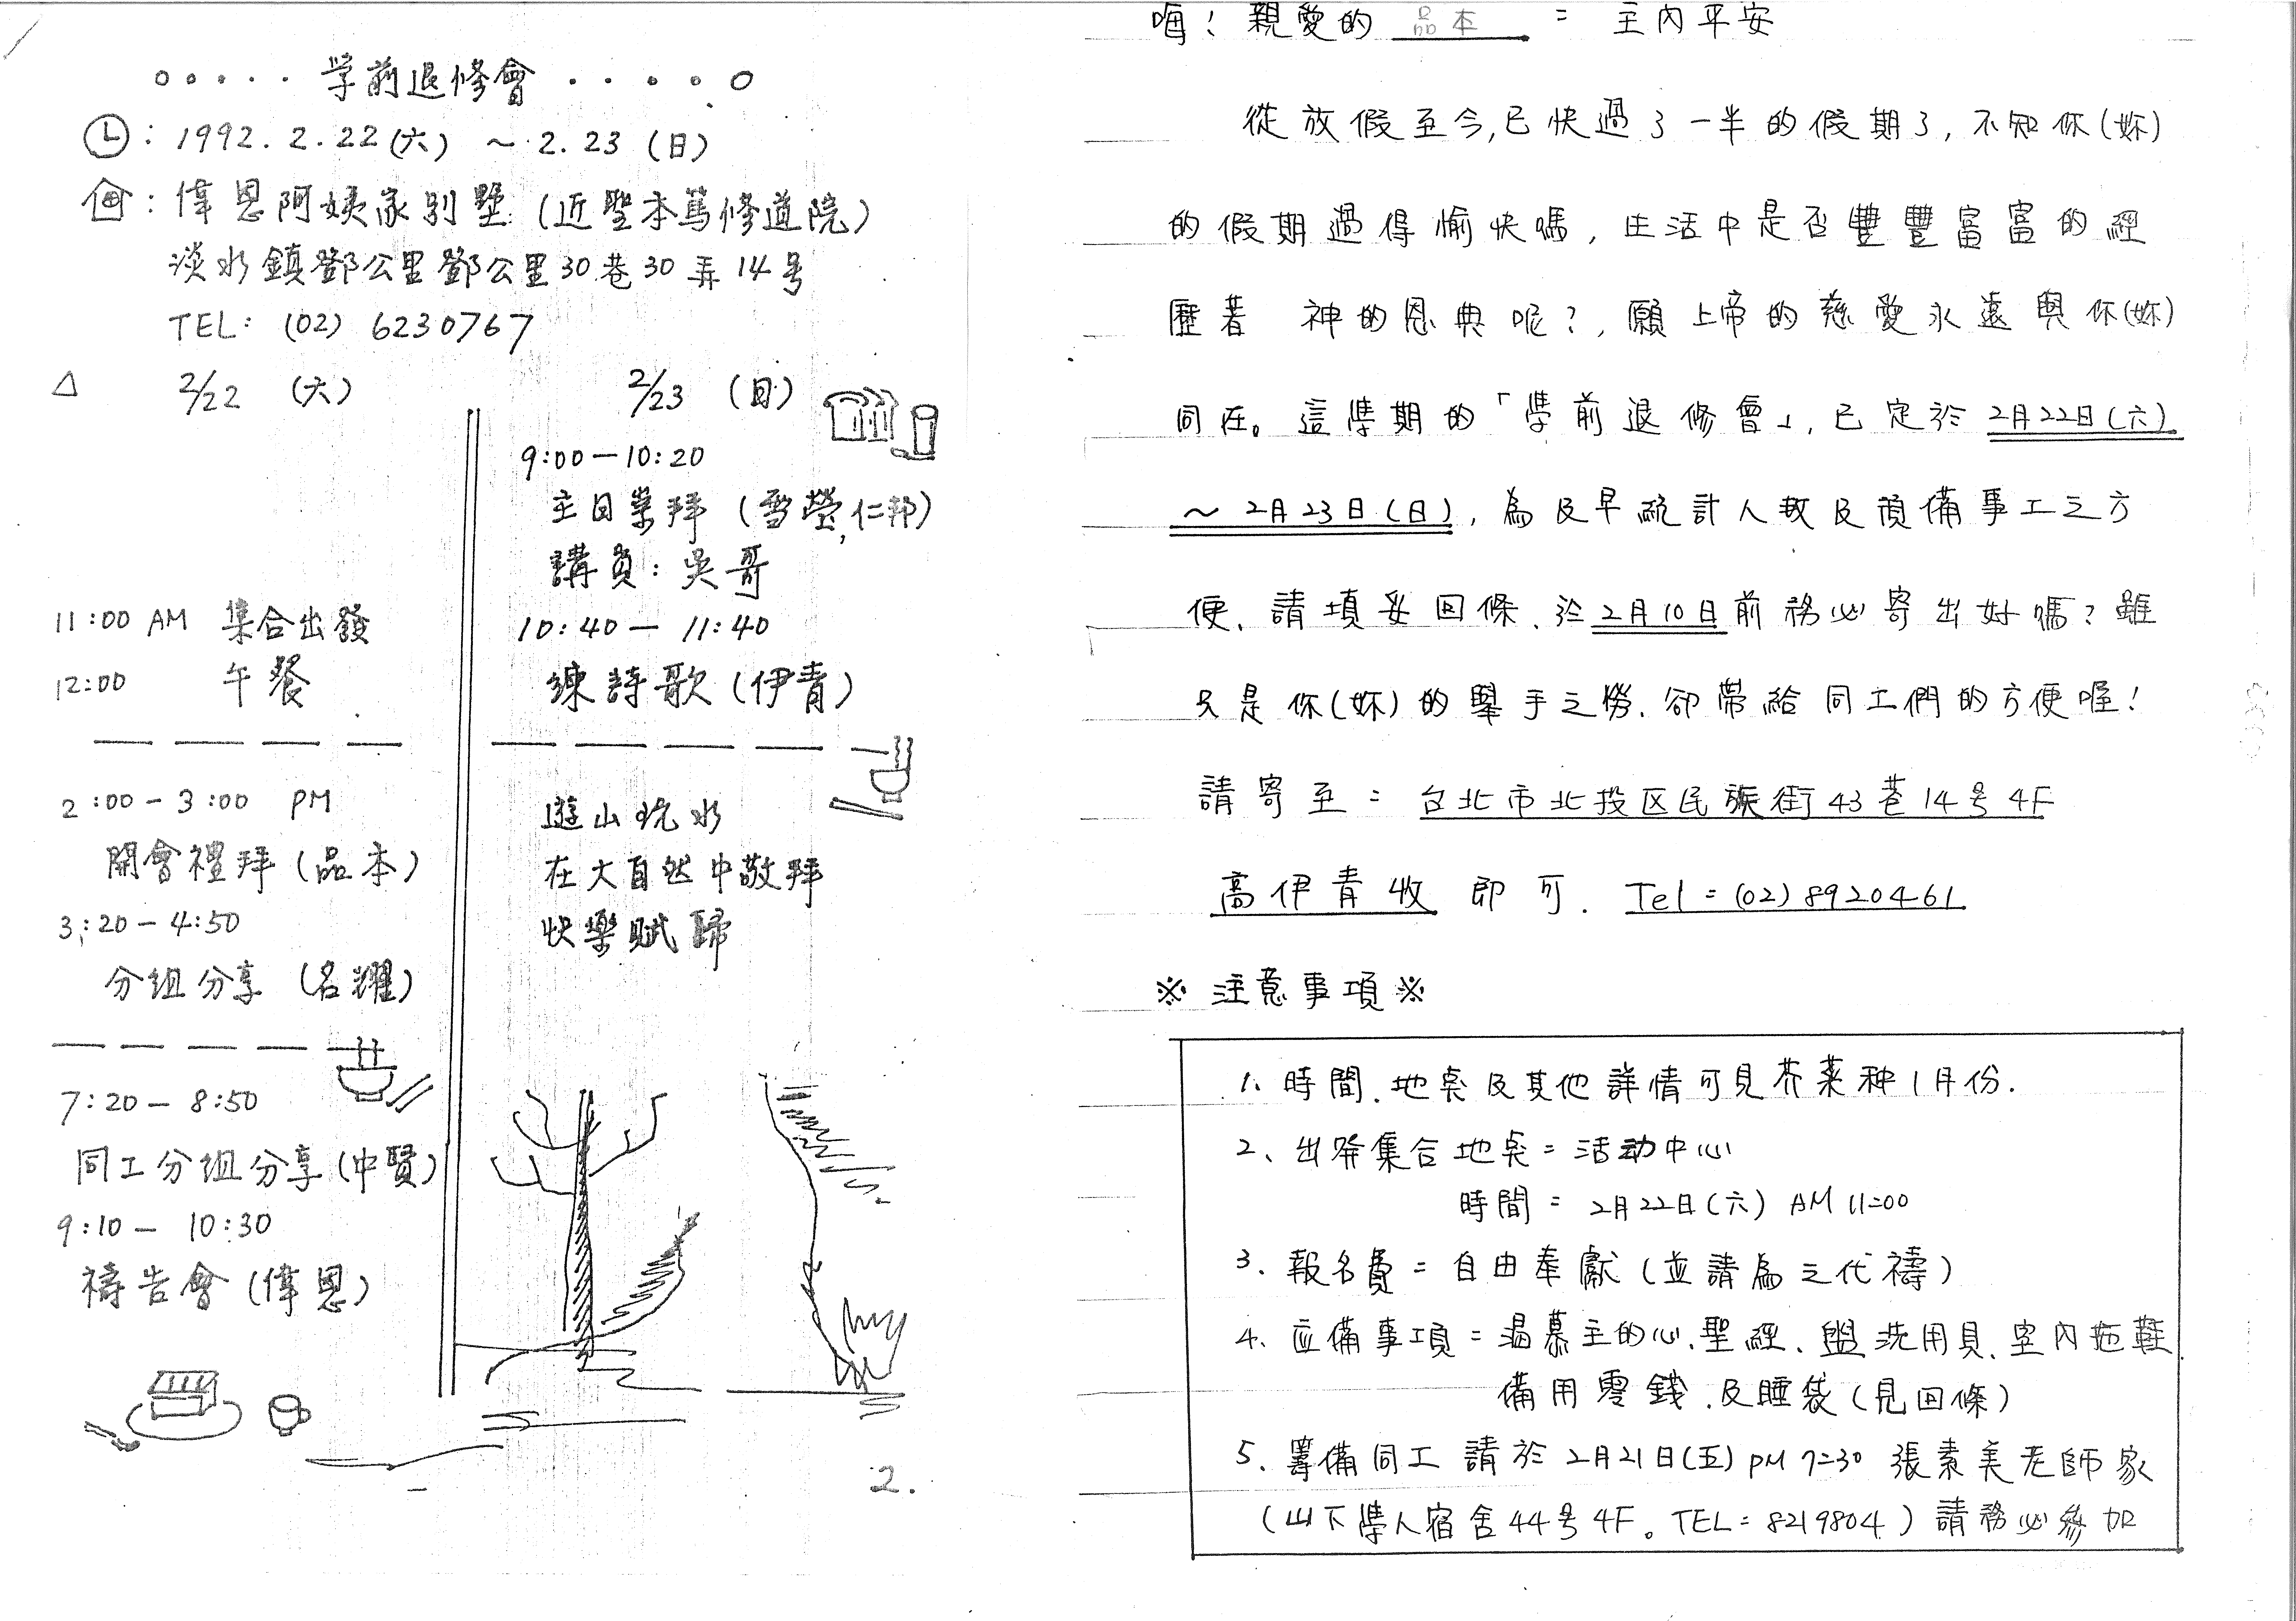 學前退修會
: 1992. 2. 22 (六) ~ 2. 23 (日)
: 偉恩阿姨家別墅 (近聖本篤修道院)
淡水鎮鄧公里鄧公里30巷30弄14号
TEL: (02) 6230767
△ 2/22 (六)
11:00 AM 集合出發
12:00 午餐
2:00-3:00 PM
開會禮拜 (品本)
3:20-4:50
分組分享 (名耀)
7:20-8:50
同工分組分享 (中賢)
9:10-10:30
禱告會 (偉恩)
2/23 (日)
9:00-10:20
主日崇拜 (雪瑩,仁邦)
講員: 吳哥
10:40-11:40
練詩歌 (伊青)
遊山玩水
在大自然中敬拜
快樂賦歸
2.
嗨! 親愛的 品本 = 主內平安
從放假至今,已快過了一半的假期了,不知你(妳)
的假期過得愉快嗎,生活中是否豐豐富富的經
歷著 神的恩典呢?,願上帝的慈愛永遠與你(妳)
同在。這學期的「學前退修會」,已定於2月22日(六)
~2月23日(日),為及早統計人数及預備事工之方
便、請填妥回條、於2月10日前務必寄出好嗎?雖
只是你(妳)的舉手之勞、卻帶給同工們的方便喔!
請寄至= 台北市北投区民族街43巷14号4F
高伊青收 即可. Tel=(02)8920461
※ 注意事項 ※
1、時間、地点及其他詳情可見芥菜种1月份.
2、出発集合地点=活动中心
時間= 2月22日(六) AM 11=00
3、報名費=自由奉獻(並請為之代禱)
4、应備事項=渴慕主的心、聖經、盥洗用具、室內拖鞋
備用零錢、及睡袋(見回條)
5、籌備同工請於2月21日(五) PM 7=30 張素美老師家
(山下學人宿舍44号4F。TEL=8219804)請務必參加